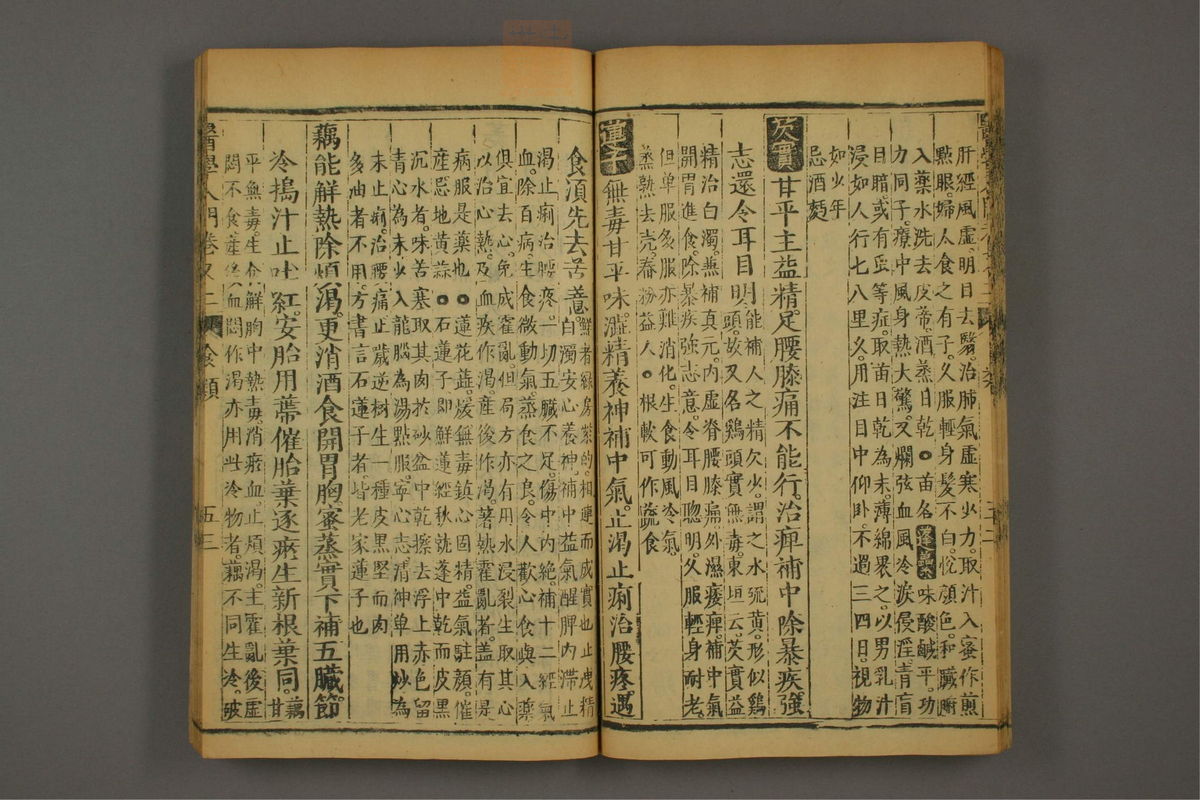 肝經風虛。明目去瞖。治肺氣虛寒少力。取汁入蜜作煎
點眼。婦人食之有子。久服輕身髮不白。悅顏色。和臟腑
入藥水洗去皮蒂。酒蒸日乾。○苗名蓬蘽味酸鹹平。功
力同子。療中風身熱大驚。又爛弦血風冷淚侵淫青盲
目暗。或有蟲等症。取苗日乾為末。薄綿裹之。以男乳汁
浸如人行七八里久。用注目中仰卧。不過三四日。視物
如少年
忌酒麪
芡實甘平主益精。足腰膝痛不能行。治痺補中除暴疾強
志還令耳目明。能補人之精欠少。謂之水硫黃。形似鷄
頭。故又名鷄頭實無毒。東垣云。芡實益
精治白濁。兼補真元。內虛脊腰膝痛。外濕痿痺。補中氣
開胃進食。除暴疾強志意。令耳目聰明。久服輕身耐老。
但單服多服亦難消化。生食動風冷氣
蒸熟去壳。舂粉益人。○根軟可作蔬食
蓮子無毒甘平味。澀精養神補中氣。止渴止痢治腰疼。遇
食湏先去苦薏。鮮者綠房紫的。相連而成實也止洩精
白濁安心養神。補中益氣醒脾內滯止
渴止痢治腰疼。一切五臟不足。傷中內絕。補十二經氣
血。除百病。生食微動氣。蒸食之良。令人歡心食與入藥
俱宜去心。免成霍亂。但局方亦有用水浸裂生取其心
以治心熱。及血疾作渴。產後作渴。著熱霍亂者。蓋有是
病服是藥也○蓮花蕋。煖無毒鎮心固精。益氣駐顏。催
產忌地黃蒜○石蓮子即鮮蓮經秋就蓬中乾而皮黑
沉水者。味苦寒取其肉於砂盆中乾擦去浮上赤色留
青心為末少入龍腦為湯點服。寧心志清神单用炒為
末止痢。治腰痛止噦逆樹生一種皮黑堅而肉
多油者不用。方書言石蓮子者。皆老家蓮子也
藕能解熱除煩渴。更消酒食開胃胸。蜜蒸實下補五臟。節
冷搗汁止吐紅。安胎用蔕催胎葉逐瘀生新根葉同。藕甘
平無毒。生食解胸中熱毒消瘀血止煩渴。主霍亂後虛
悶不食產後血悶作渴亦用此冷物者。藕不同生冷。破
醫學入門卷又二 食類 五三